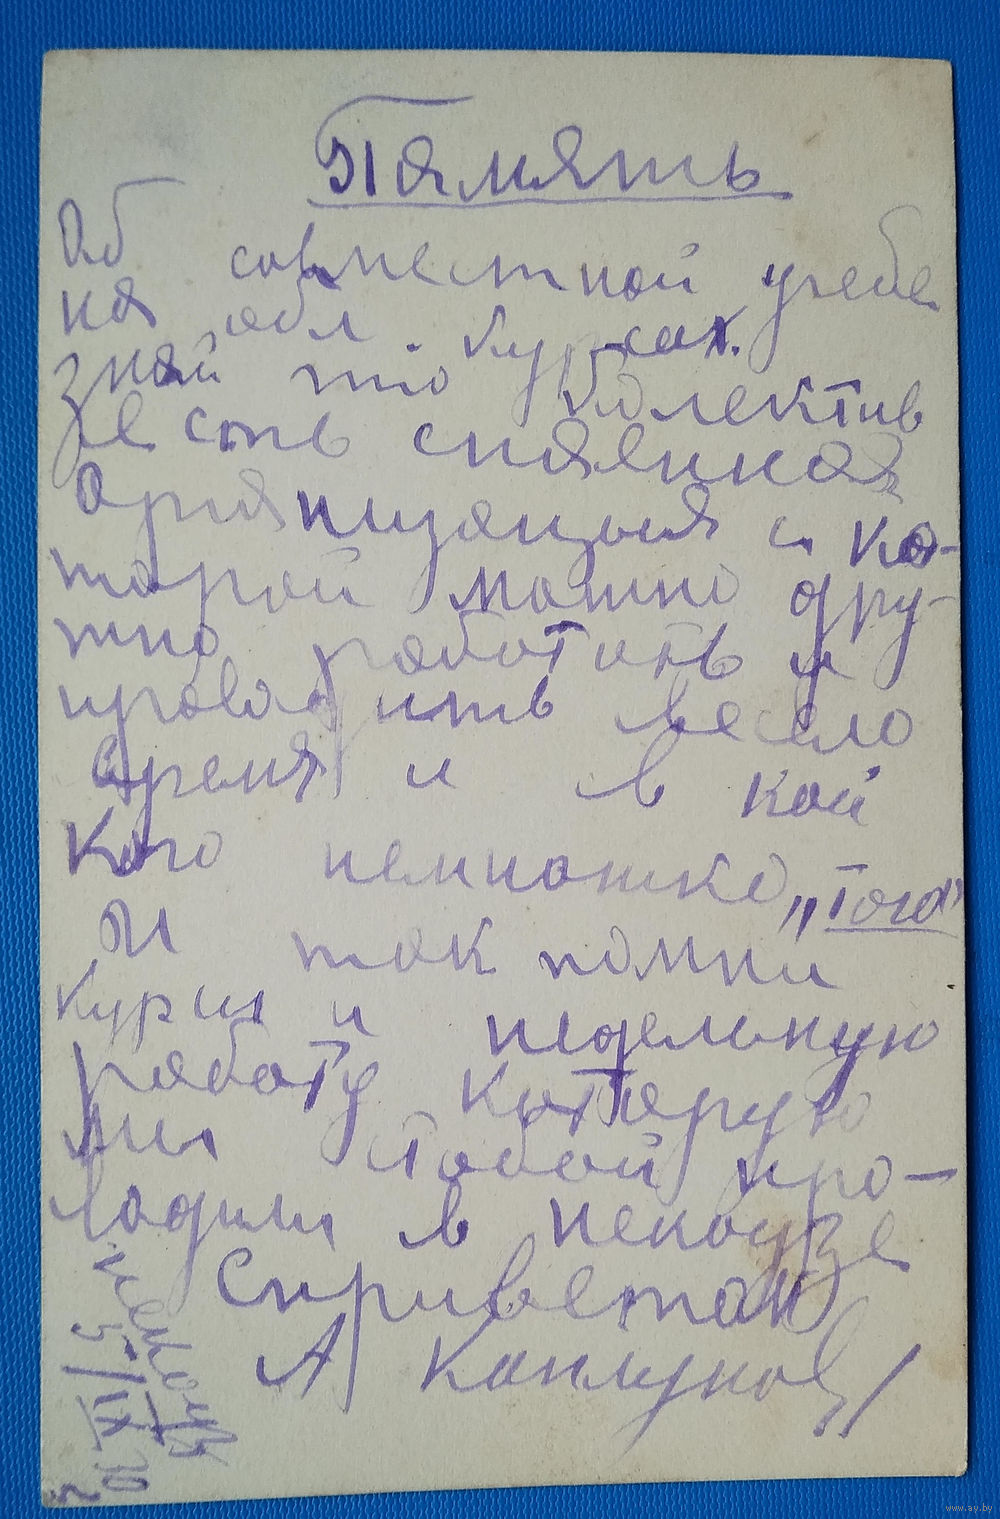 Память
Об совместной учебе
на обл. курсах.
знай што колектив
есть спаянная
организация с ко-
торой можно дру-
жно работать и
проводить весело
время и в кой
кого немношко „того"
И так помни
курсы и недельную
работу которую
мы с тобой про-
водили в
С приветом
А Каплунов
5/IX 30
www.ay.by